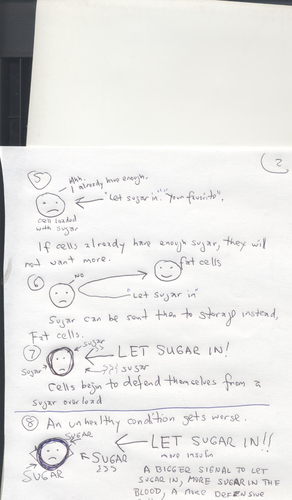 2
5
Ahh.
I already have enough.
"Let sugar in". "Your favorite".
cell loaded
with sugar
If cells already have enough sugar, they will
not want more.
6
NO
fat cells
"Let sugar in"
Sugar can be sent then to storage instead,
Fat cells.
7
sugar
LET SUGAR IN!
Sugar
sugar
Cells begin to defend themselves from a
sugar overload
8 An unhealthy condition gets worse.
SUGAR
LET SUGAR IN!!
more insulin
SUGAR
SUGAR
A BIGGER SIGNAL TO LET
SUGAR IN, MORE SUGAR IN THE
BLOOD, A MORE DEFENSIVE